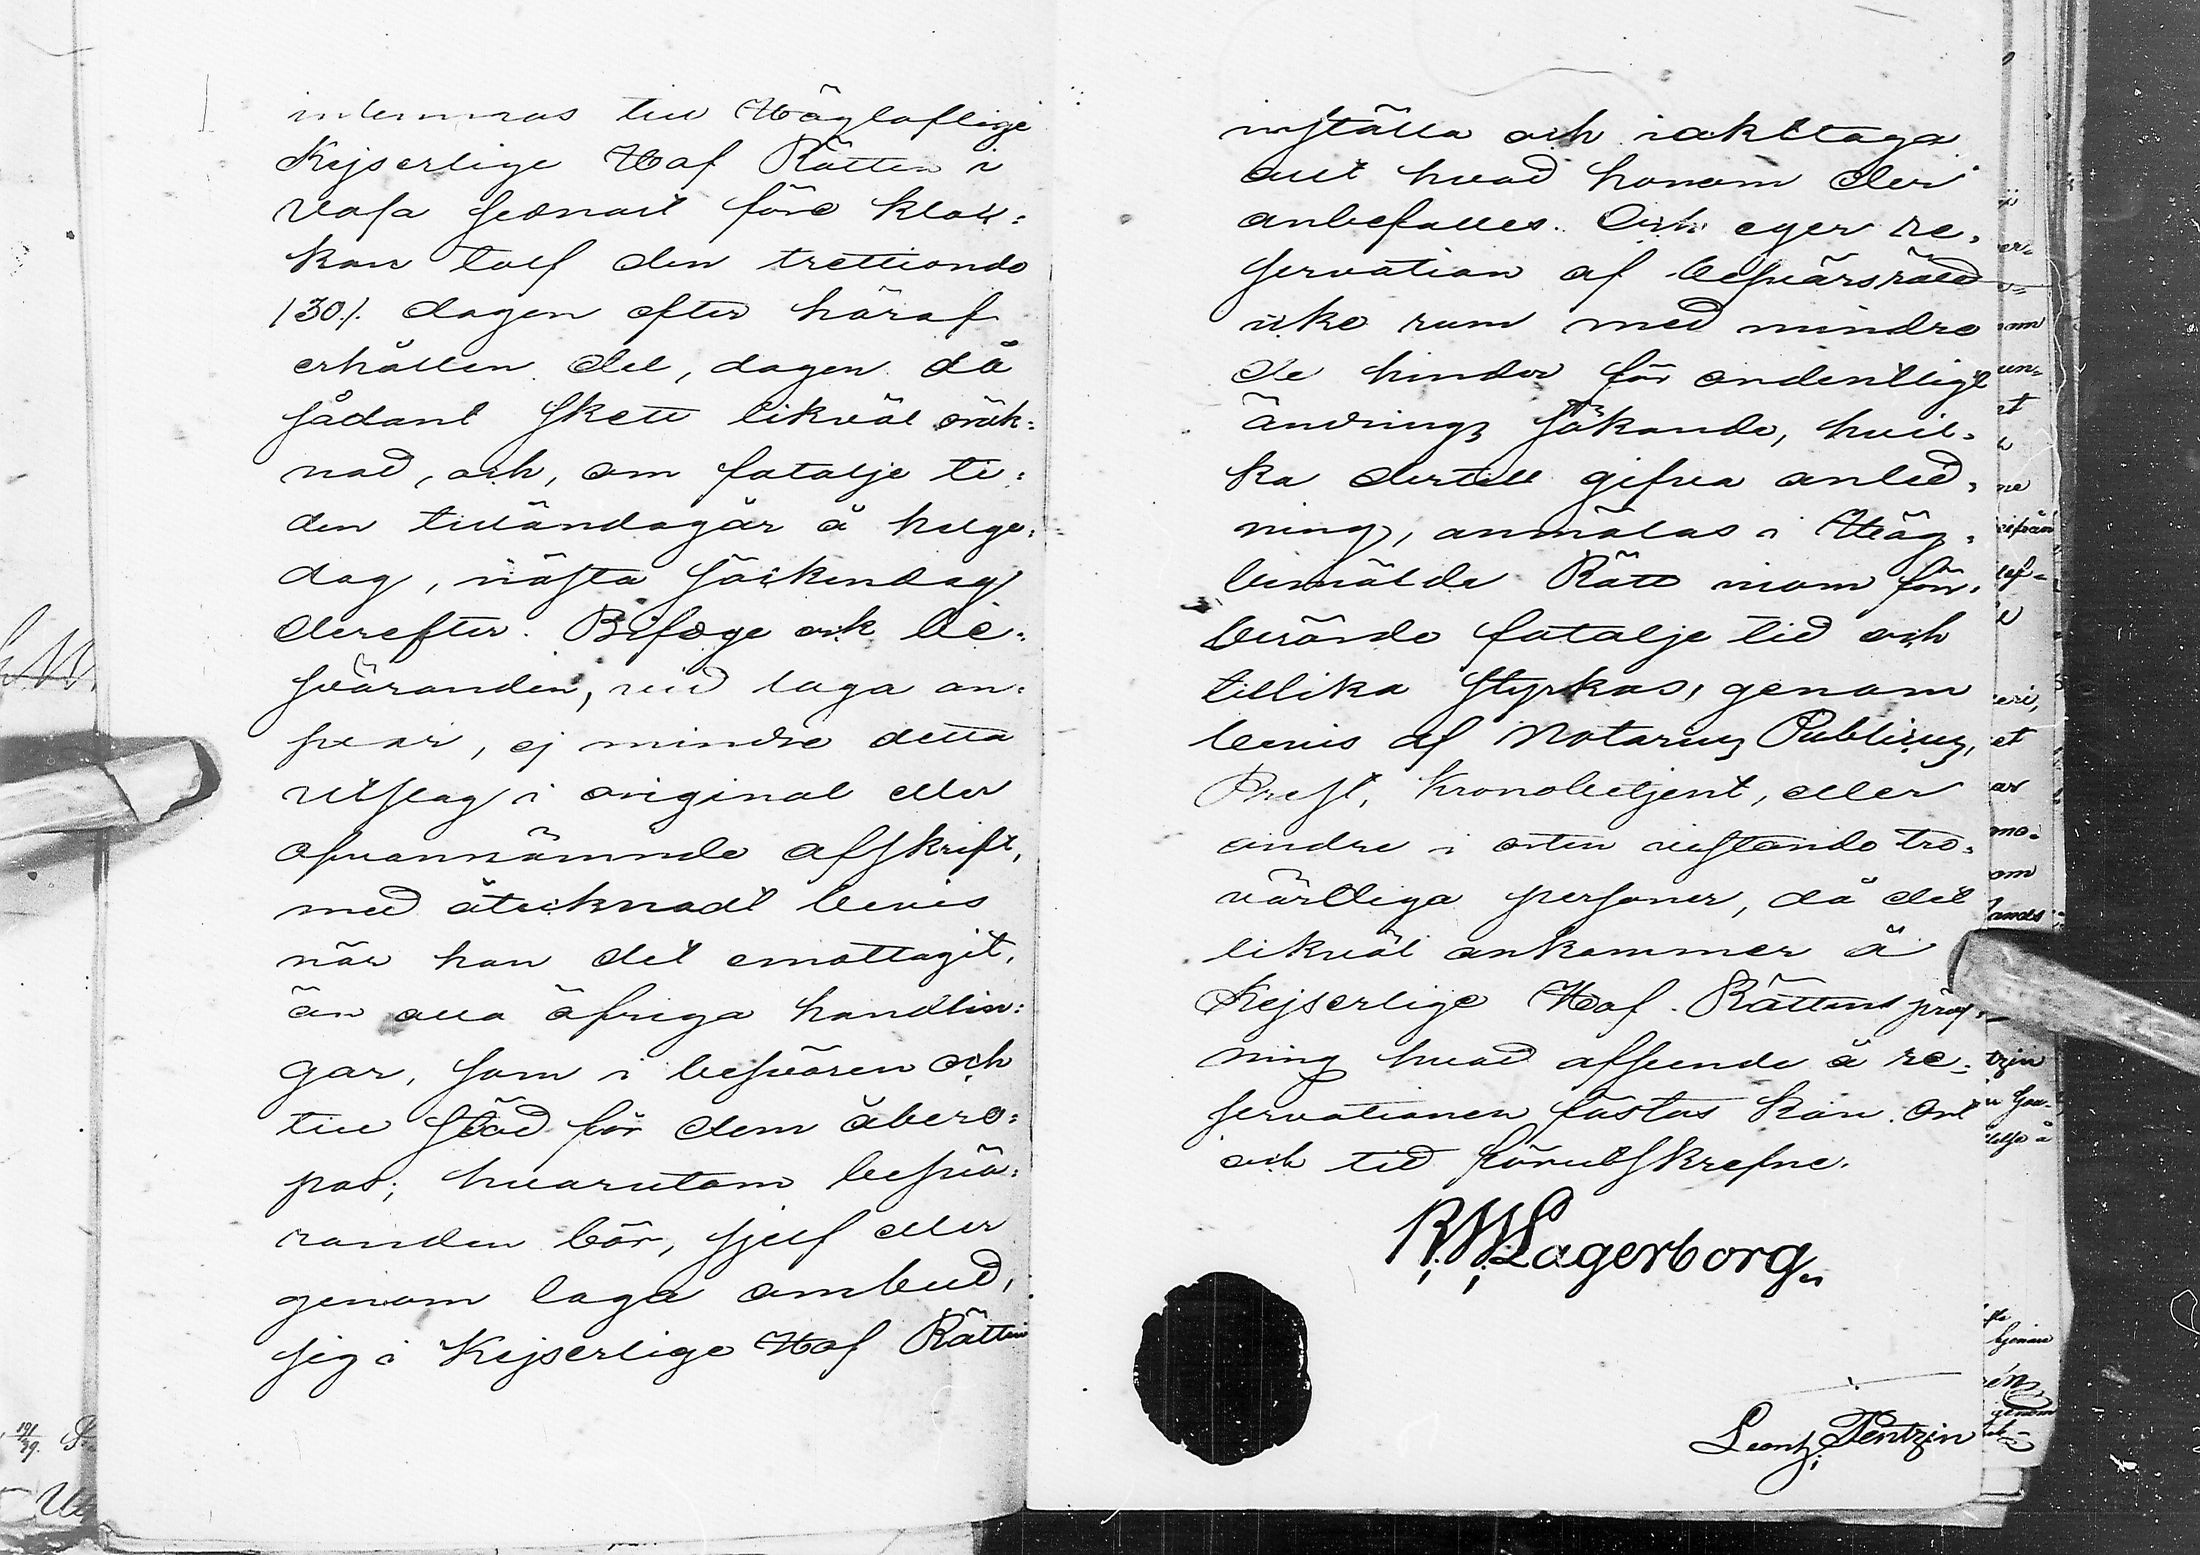 inlemnas till Högloflige
Kejserlige Hof Rätten i
Vasa sednast före kloc-
kan tolf den trettionde
/30./. dagen efter häraf
erhållen del, dagen då
sådant skett likväl oräk-
nad, och, om fatalje ti-
den tilländagår å helge-
dag, nästa söckendag
derefter. Bifoge ock be-
sväranden, vid laga an-
svar, ej mindre detta
utslag i original eller
ofvannämnde afskrift,
med åtecknadt bevis
när han det emottagit,
än alla öfriga handlin-
gar, som i besvären och
till stöd för dem åbero-
pas; hvarutom besvä-
randen bör, sjelf eller
genom laga ombud,
sig i Kejserlige Hof Rätten
inställa och iakttaga
allt hvad honom der
anbefalles. Och eger re-
servation af besvärsrätt
icke rum med mindre
de hinder för ordentligt
ändrings sökande, hvil-
ka dertill gifva anled-
ning, anmälas i Hög-
bemälde Rätt inom för-
berörde fatalje tid och
tillika styrkas, genom
bevis af Notarius Publicus,
Prest, Kronobetjent, eller
andre i orten vistande tro-
värdiga personer, då det
likväl ankommer å
Kejserlige Hof Rättens pröf-
ning hvad afseende å re-
servationen fästas kan. Ort
och tid förutskrefne.
R W Lagerborg
Leontz Pentzin